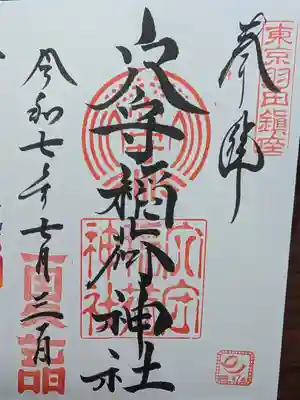 東京羽田鎮座
奉拝
穴守稲荷神社
穴守稲荷神社
令和七年七月三一日